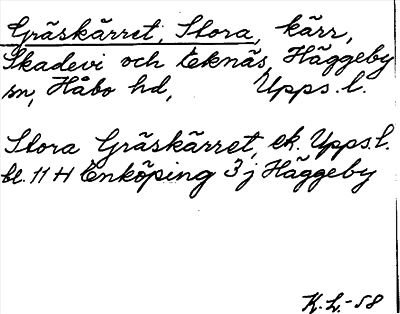 Gräskärret, Stora, kärr,
Skadevi och Eknäs, Häggeby
sn, Håbo hd, Upps. l.
Stora Gräskärret, ek. Upps. l.
bl. 11 H Enköping 3 j Häggeby
K.L.-58